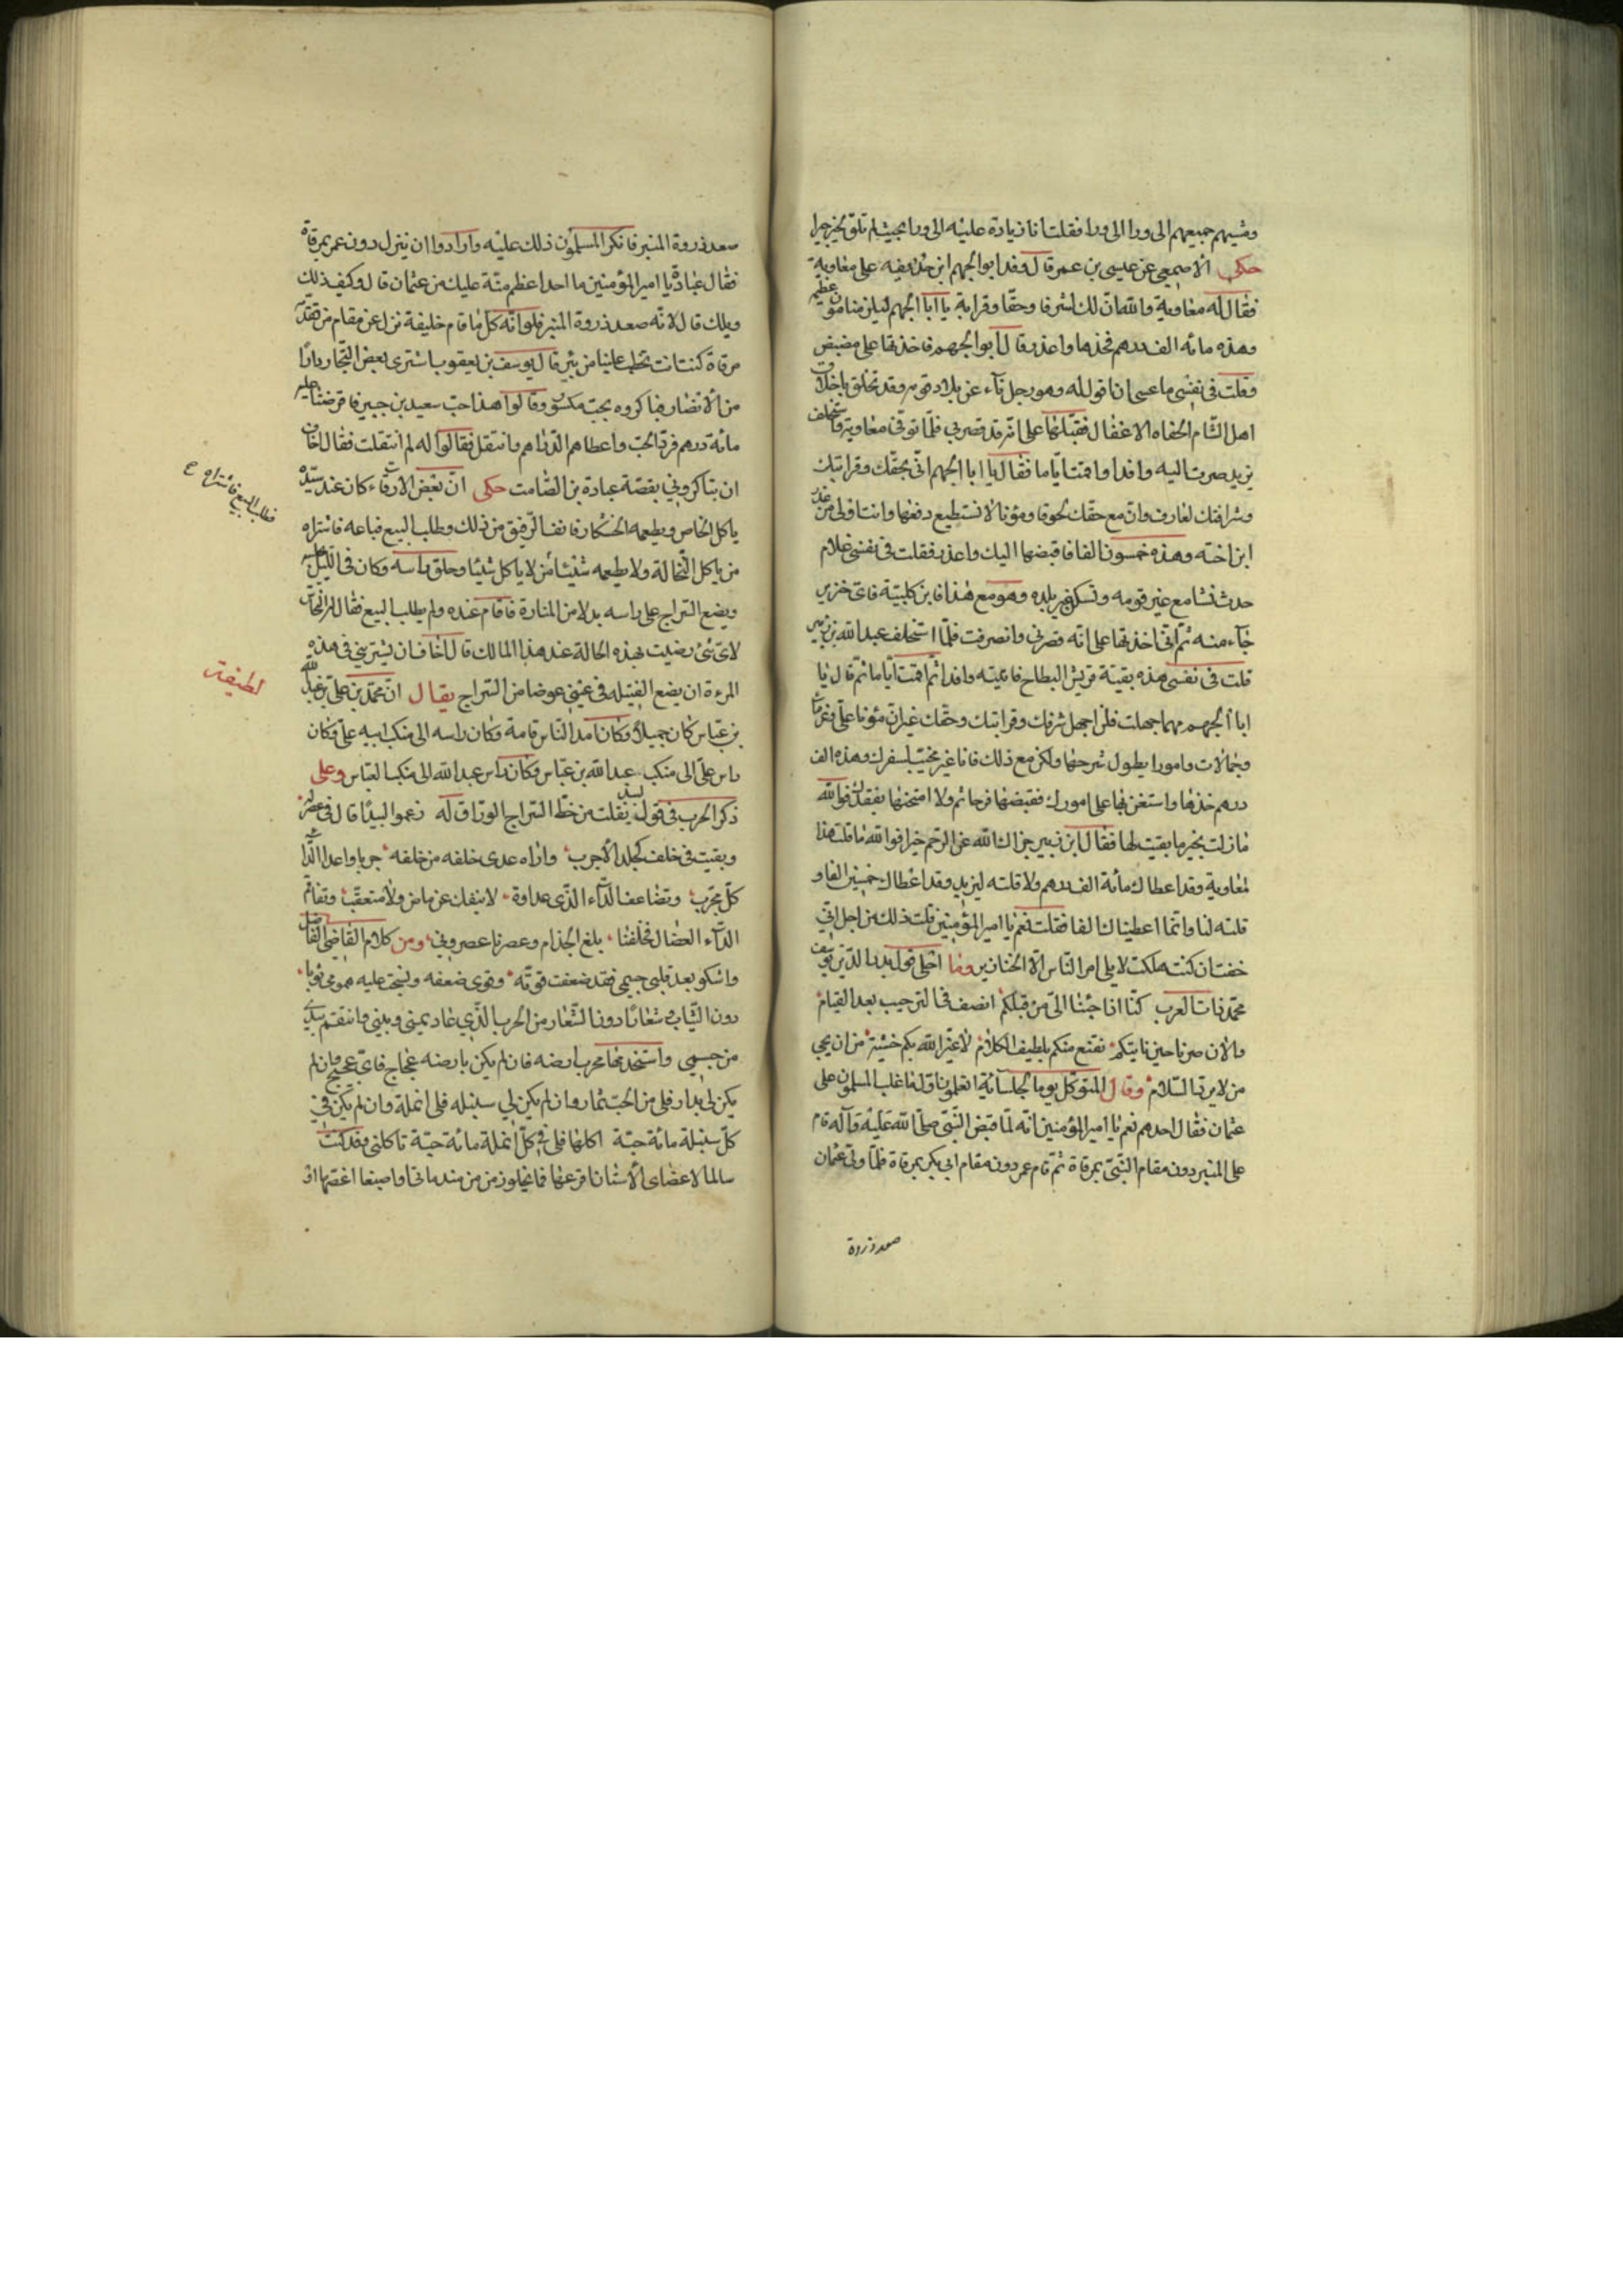 ومشيهم جميعهم الى ورا الى ورا فقلت انا زيادة عليه الى ورا بحيث لم تلق بخير جيرا
حكى الاصمعي عن عيسى بن عمر قال وفد ابو الجهم ابن حذيفه على معاوية
فقال له معاوية والله ان لك لشرفا وحقا وقرابة يا ابا الجهم ليلزمنا مؤن عظيم
وهذه مائه الف درهم فخذها واعذر قال ابو الجهم فاخذتها على مضض
وقلت في نفسي ما عسى ان اقول له وهو رجل ناء عن بلاد قومه وقد تخلق باخلاق
اهل الشام الجفاه الاغفال فقبلتها على انه قد قصر بي فلما توفي معاوية واستخلف
يزيد صرت اليه وافدا واقمت اياما فقال يا ابا الجهم اني بحقك وقرابتك
وشرافتك لعارف وان مع حقك لحقوقا ومؤنا لا نستطيع دفعها وانت اولى من عذر
ابن اخته وهذه خمسون الفا فاقبضها اليك واعذر فقلت في نفسي غلام
حدث نشا مع غير قومه وتسكن غير بلده وهو مع هذا فابن كلبية فاي خير
جاء منه ثم اني اخذتها على انه قصر بي وانصرفت فلما استخلف عبد الله بن زبير
قلت في نفسي هذه بقية قريش البطاح فاتيته وافدا ثم اقمت اياما ثم قال يا
ابا الجهم مهما جهلت فلن اجهل شرفك وقرابتك وحقك غير ان مؤنا على وغرمات
وحمالات وامورا يطول شرحها ولكن مع ذلك فانا غير مخيب لسفرك وهذه الف
درهم خذها واستعن بها على امورك فقبضتها فرحا ثم ولا امتحنها بفقدك فوالله
ما زلت بخير ما بقيت لها فقال ابن زبير جزاك الله عن الرحم خيرا فوالله ما قلت هذا
لمعاوية وقد اعطاك مائة الف درهم ولا قلته ليزيد وقد اعطاك خمسين الفا و
قلته لنا وانما اعطيناك الفا فقلت نعم يا امير المؤمنين قلت ذلك من اجل اني
خفت ان كنت هلكت لا يلي امر الناس الا الخنازير وما احلى قول بدر الدين يوسف
محمد نات العرب كنا اذا جئنا الى من قبلكم انصف في الترحيب بعد القيام
والان صرنا حين ناتيكم نقنع منكم بلطيف الكلام لا غير الله بكم خشية من ان يجي
من لا يرد السلام وقال المتوكل يوما لجلسائه اتعلمون اول ما غلب المسلمون على
عثمان فقال احدهم نعم يا امير المؤمنين انه لما قبض النبي صلى الله عليه وآله قام
على المنبر دون مقام النبي بمرقاة ثم قام عمر دون مقام ابي بكر بمرقاة فلما ولى عثمان
صعد ذروة
صعد ذروة المنبر فانكر المسلمون ذلك عليه وارادوا ان ينزل دون عمر بمرقاة
فقال عبادة يا امير المؤمنين ما احد اعظم منة عليك من عثمان قال وكيف ذلك
ويلك قال لانه صعد ذروة المنبر فلو انه كل ما قام خليفة نزل عن مقام من تقدمه
مرقاة كنت انت تخطب علينا من بئر قال يوسف بن يعقوب اشترى بعض التجار دارا
من الانصار فتاكروه بحب مكسور وقالوا هذا حب سعيد بن جبير فاقرضنا عليه
مائة درهم فرد الحب واعطاهم الدراهم وانتقل فقالوا له لم انتقلت فقال اخاف
ان تتاكروني بقصة عبادة بن الصامت حكى ان بعض الارقاء كان عند سيد
ياكل الخاص ويطعمه الخشكار فانف الرقيق من ذلك وطلب البيع فباعه فاشتراه
من ياكل النخالة ولا يطعمه شيئا من لا ياكل شيئا وحلق راسه وكان في الليل يجلسه
ويضع السراج على راسه بدلا من المنارة فاقام عنده ولم يطلب البيع فقال له النخاس
لاي شئ رضيت بهذه الحالة عند هذا المالك قال اخاف ان يشتريني في هذه
المرة ان يضع الفتيله في عيني عوضا من السراج يقال ان محمد بن علي بن عبد الله
بن عباس كان جميلا وكان امد الناس قامة وكان راسه الى منكب ابيه علي وكان
راس علي الى منكب عبد الله بن عباس وكان راس عبد الله الى منكب العباس وعلى
ذكر الحرب في قول لبيد نقلت من خط السراج الوراق له زعموا لبيدا قال في عصر
وبقيت في خلف كجلد الاجرب واراه عدى خلفه من خلفه جربا واعدا الدا
كل مجرب وتضاعف الداء الذي عداوة لا ينفك عن ماض ولا متعقب وتفاقم
الداء العضال فخلفنا بلغ الجذام وعصرنا عصر وبي ومن كلام القاضي الفاضل
واشكو بعد قلبي جسمي فقد ضعفت قوته وقوى ضعفه ونسجت عليه همومي ثوبا
دون الثياب وشعارا دون الشعار من الحرب الذي عاد بيني وبيني وانتقم بيدي
من جسمي واستخدمها محرب ارضه فان لم يكن بارضه عجاج فاي عجيج فان لم
يكن لي بدار فلي من الحب ثمار وان لم يكن لي سنبله فلى انملة وان لم يكن في
كل سنبلة مائة حبة اكلها فلي في كل انملة مائة حبة تاكلني وقد كنت
سالما لاعضاي الا سنانا اقرعها فانا
فطلب البيع فاشتراه ع
لطيفة